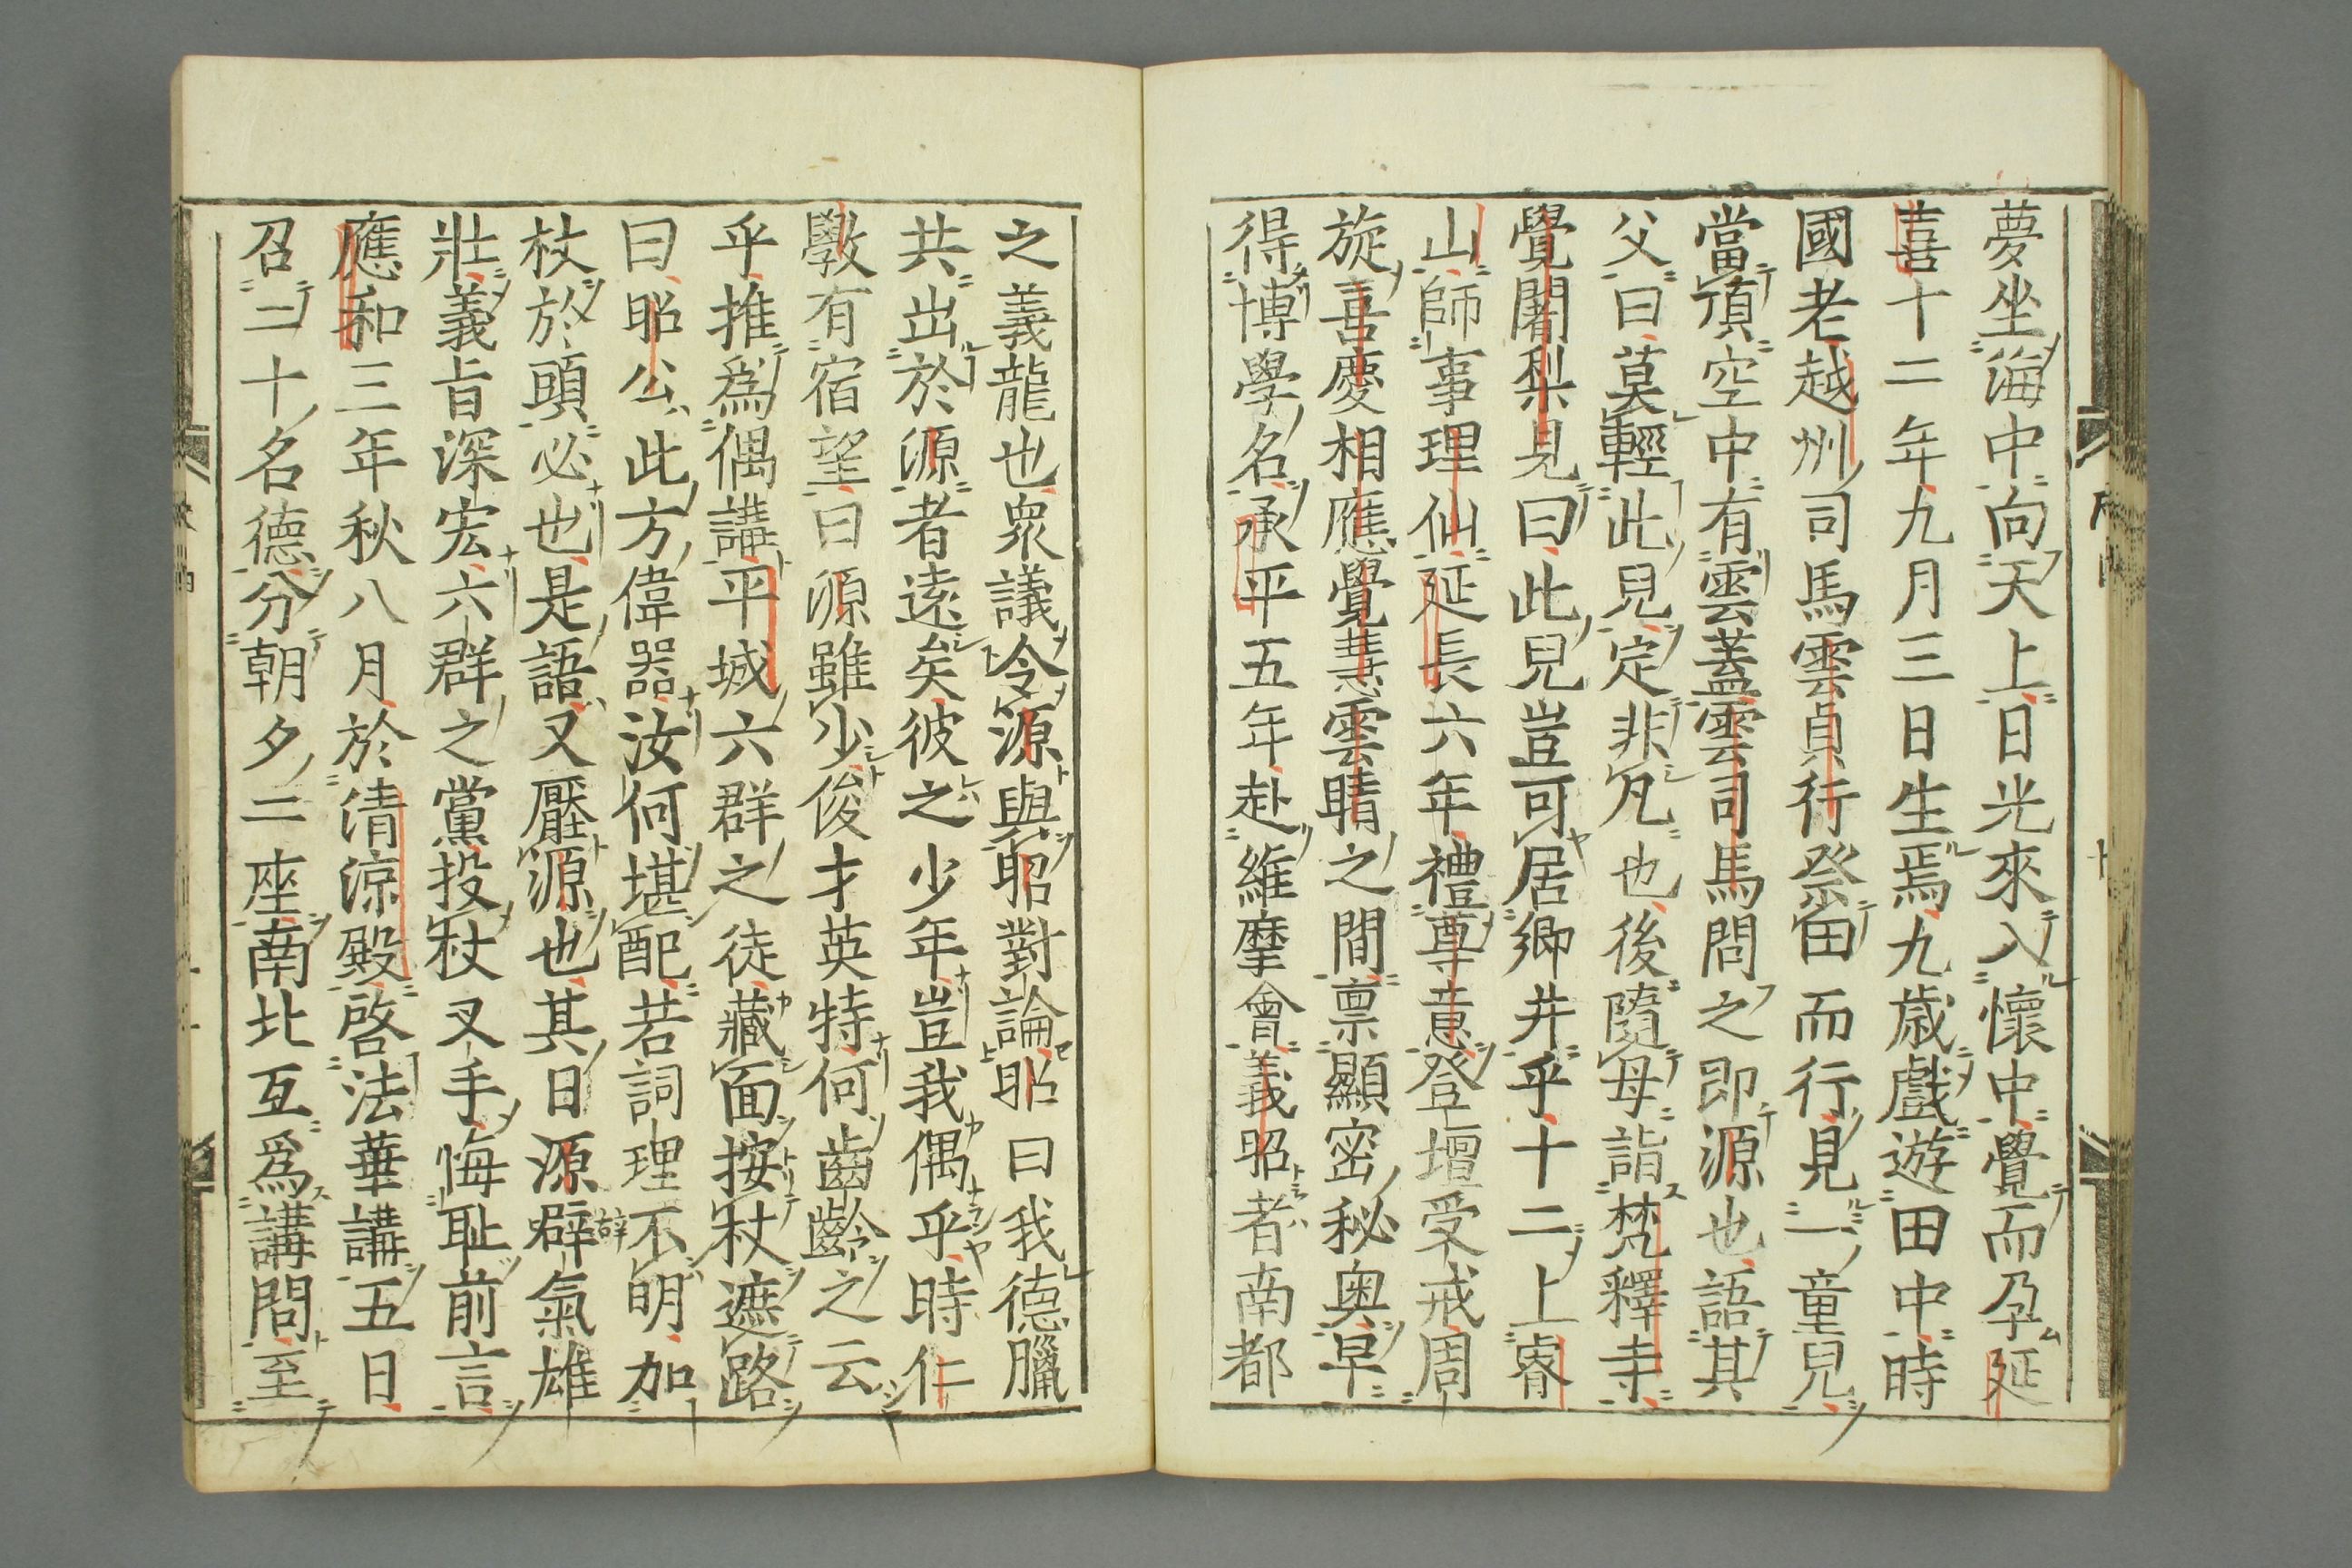 夢坐海中向天上日光來入懷中覺而孕延
喜十二年九月三日生焉九歳戲遊田中時
國老越州司馬雲貞行祭田而行見一童兒
當頂空中有雲蓋雲司馬問之即源也語其
父曰莫輕此兒定非凡也後隨母詣梵釋寺
覺闍梨見曰此兒豈可居卿井乎十二上睿
山師事理仙延長六年禮尊意登壇受戒周
旋喜慶相應覺慧雲晴之間禀顯密秘奥早
得博學名承平五年赴維摩會義昭者南都
之義龍也衆議令源與昭對論昭曰我德臘
共出於源者遠矣彼之少年豈我偶乎時仁
斅有宿望曰源雖少俊才英特何齒齡之云
乎推爲偶講平城六群之徒藏面按杖遮路
曰昭公此方偉器汝何堪配若詞理不明加
杖於頭必也是語又壓源也其日源辟氣雄
壯義旨深宏六群之黨投杖叉手悔耻前言
應和三年秋八月於清涼殿啓法華講五日
召二十名德分朝夕二座南北互爲講問至